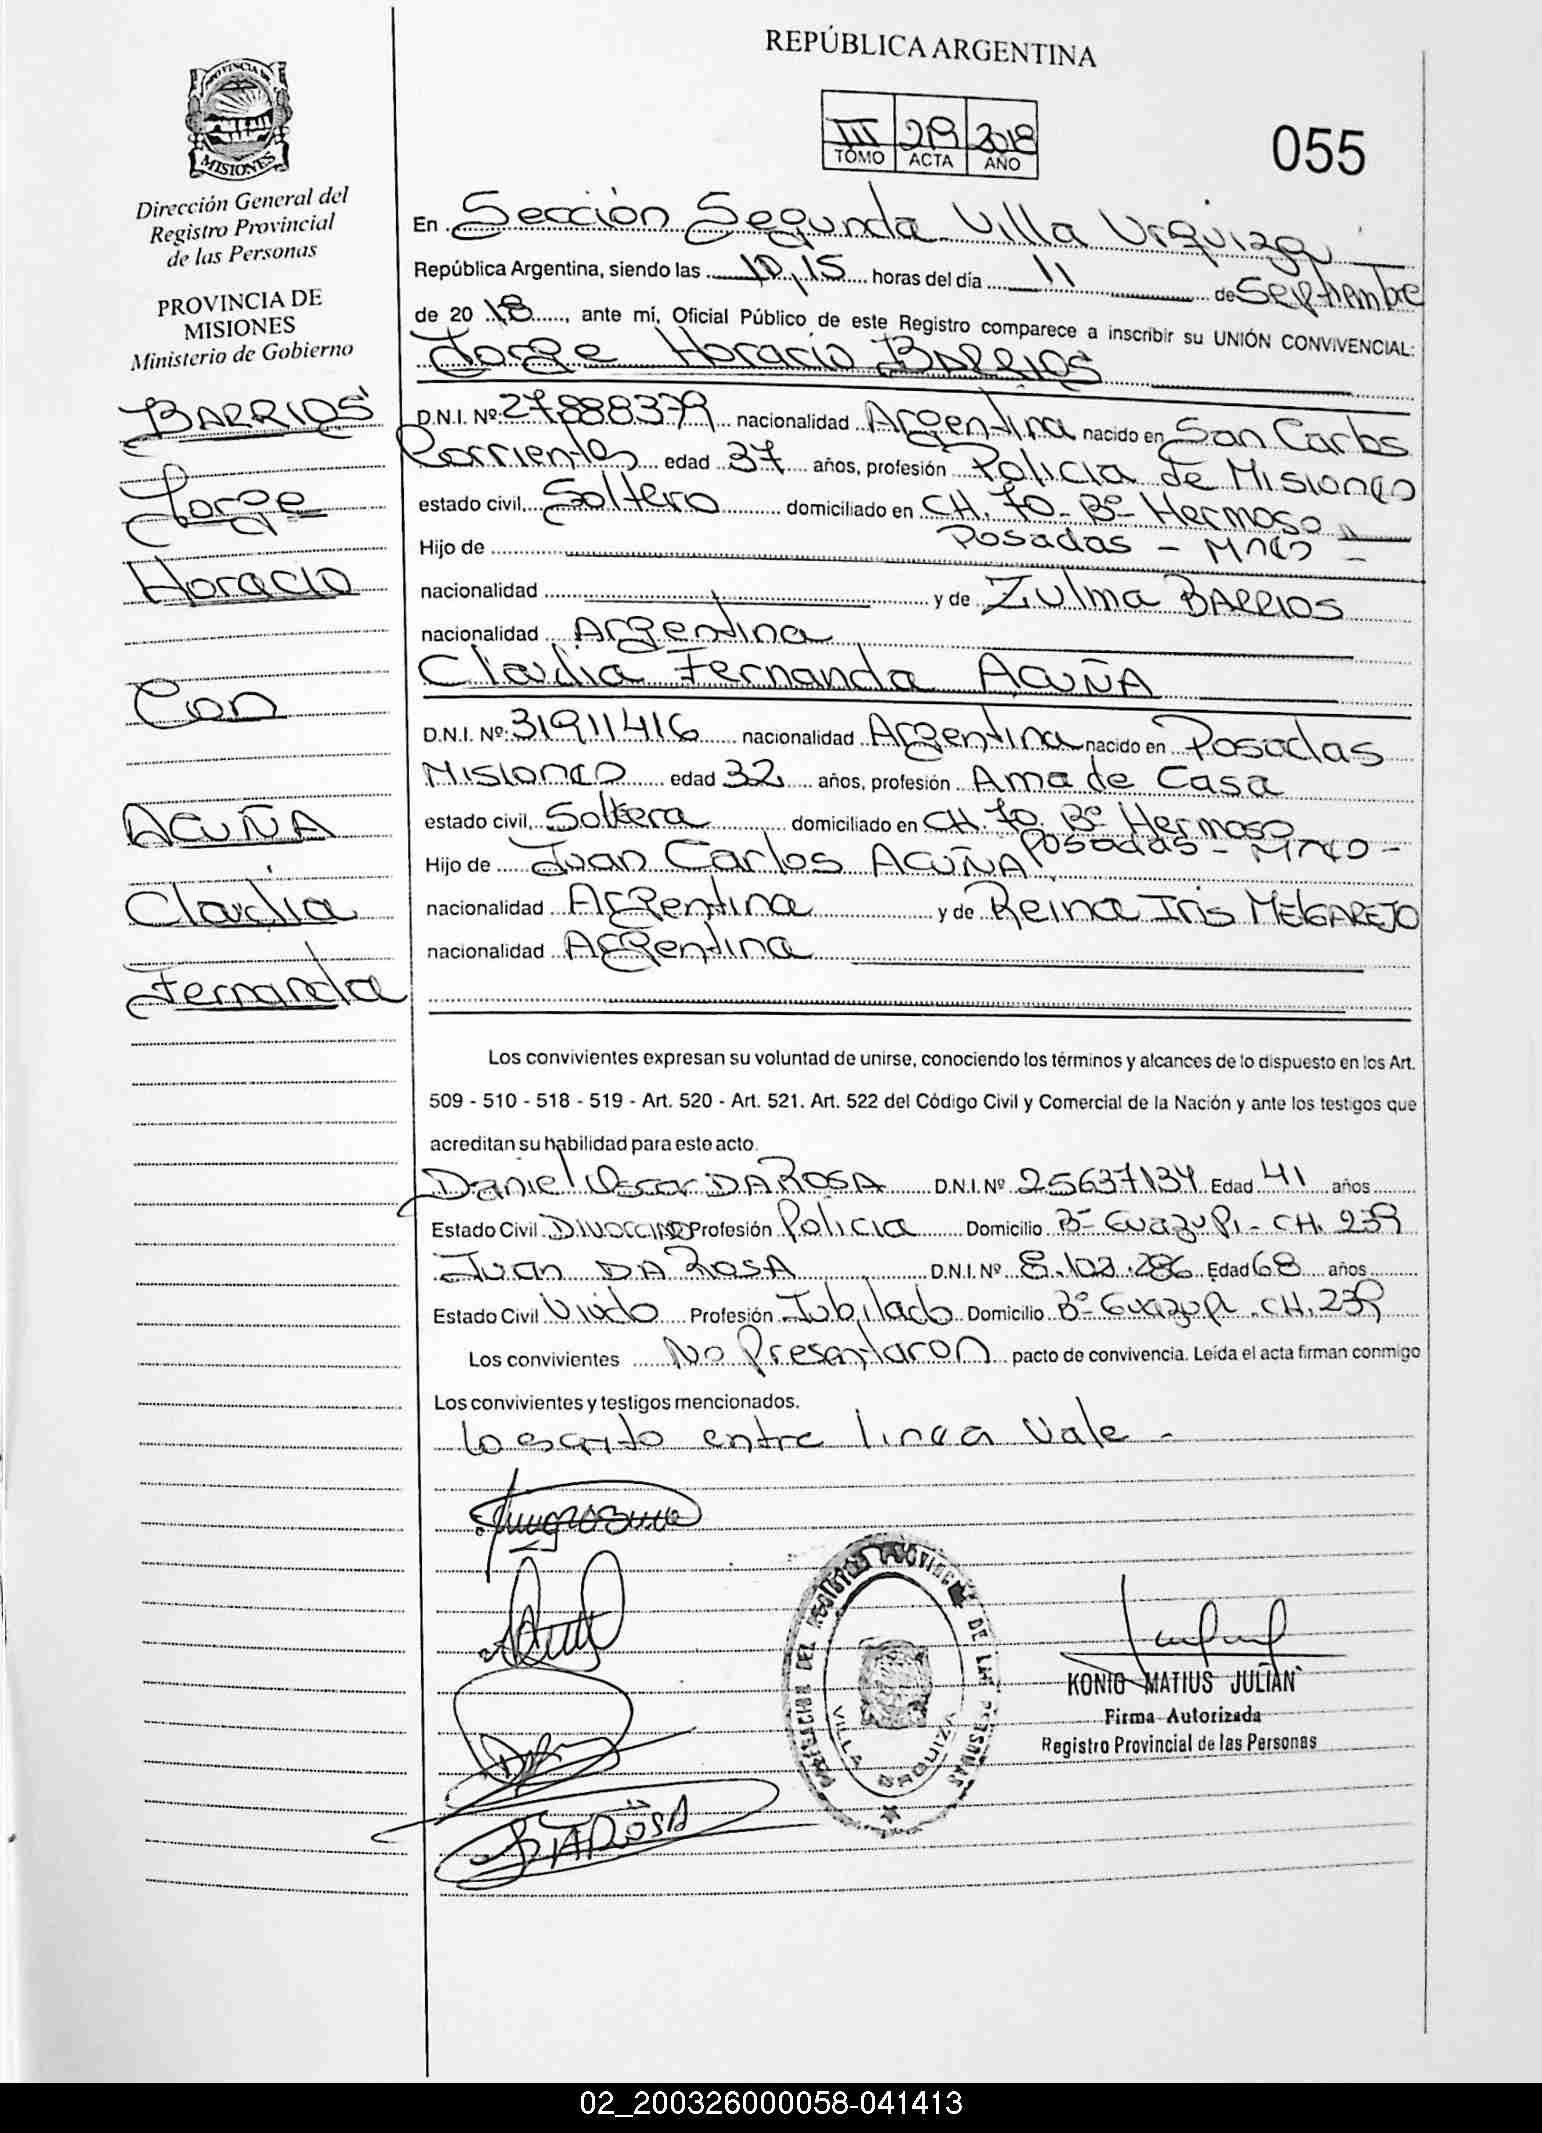 REPÚBLICA ARGENTINA
PROVINCIA DE
MISIONES
III 219 2018
TOMO ACTA AÑO
055
Dirección General del
Registro Provincial
de las Personas
PROVINCIA DE
MISIONES
Ministerio de Gobierno
BARRIOS
Jorge
Horacio
Con
ACUÑA
Claudia
Fernanda
En Sección Segunda Villa Urquiza
República Argentina, siendo las 10,15 horas del día 11 de Septiembre
de 2018, ante mí, Oficial Público de este Registro comparece a inscribir su UNIÓN CONVIVENCIAL:
Jorge Horacio BARRIOS
D.N.I. Nº: 27888379 nacionalidad Argentina nacido en San Carlos
Corrientes edad 37 años, profesión Policia de Misiones
estado civil, Soltero domiciliado en CH. 70 - Bº Hermoso
Posadas - Mnes -
Hijo de
nacionalidad y de Zulma BARRIOS
nacionalidad Argentina
Claudia Fernanda ACUÑA
D.N.I. Nº: 31911416 nacionalidad Argentina nacido en Posadas
Misiones edad 32 años, profesión Ama de Casa
estado civil, Soltera domiciliado en CH. 70. Bº Hermoso
Posadas - Mnes -
Hijo de Juan Carlos ACUÑA
nacionalidad Argentina y de Reina Iris MELGAREJO
nacionalidad Argentina
Los convivientes expresan su voluntad de unirse, conociendo los términos y alcances de lo dispuesto en los Art.
509 - 510 - 518 - 519 - Art. 520 - Art. 521. Art. 522 del Código Civil y Comercial de la Nación y ante los testigos que
acreditan su habilidad para este acto.
Daniel Oscar DA ROSA D.N.I. Nº 25637134 Edad 41 años
Estado Civil Divorciado Profesión Policia Domicilio Bº Guazupi - CH. 239
Juan DA ROSA D.N.I. Nº 8.102.286 Edad 68 años
Estado Civil Viudo Profesión Jubilado Domicilio Bº Guazupi - CH. 239
Los convivientes No Presentaron pacto de convivencia. Leída el acta firman conmigo
Los convivientes y testigos mencionados.
lo escrito entre linea Vale -
DAROSA
DIRECCION DEL REGISTRO PROVINCIAL DE LAS PERSONAS
VILLA URQUIZA
KONIG MATIUS JULIAN
Firma Autorizada
Registro Provincial de las Personas
02_200326000058-041413